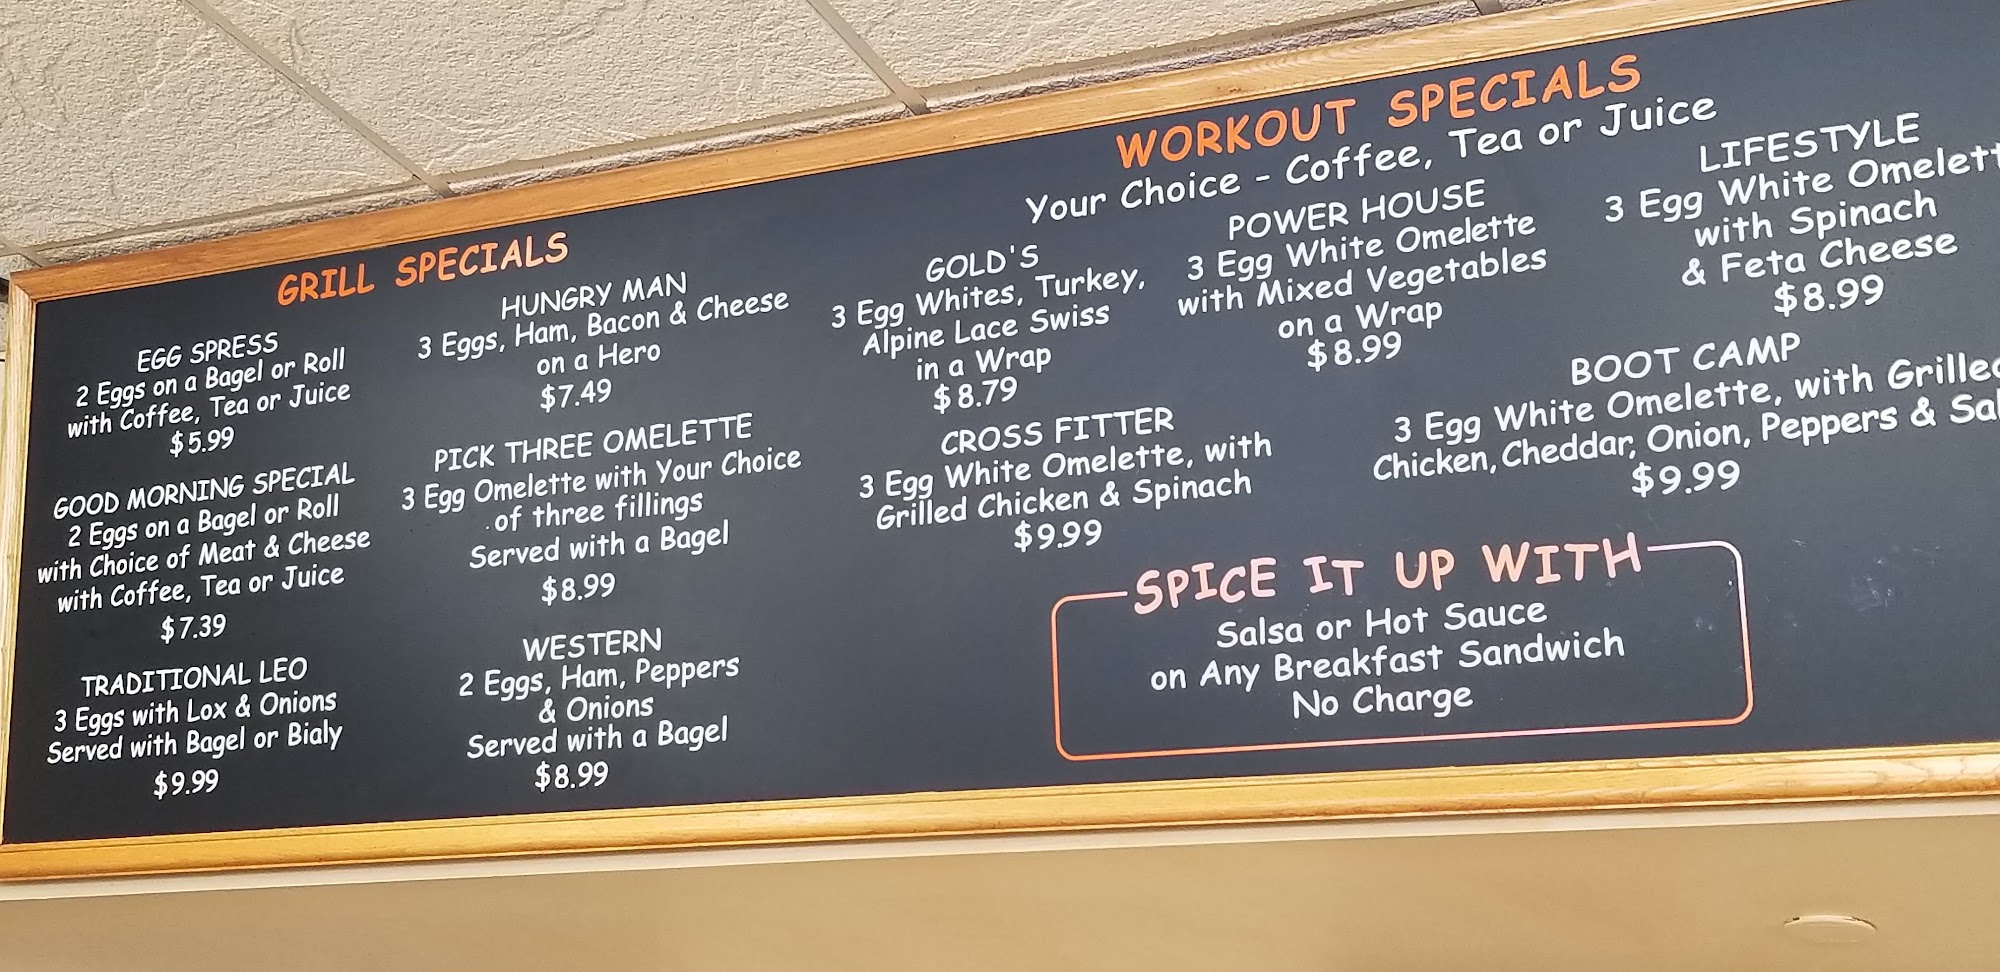 GRILL SPECIALS
EGG SPRESS
2 Eggs on a Bagel or Roll
with Coffee, Tea or Juice
$5.99
GOOD MORNING SPECIAL
2 Eggs on a Bagel or Roll
with Choice of Meat & Cheese
with Coffee, Tea or Juice
$7.39
TRADITIONAL LEO
3 Eggs with Lox & Onions
Served with Bagel or Bialy
$9.99
HUNGRY MAN
3 Eggs, Ham, Bacon & Cheese
on a Hero
$7.49
PICK THREE OMELETTE
3 Egg Omelette with Your Choice
of three fillings
Served with a Bagel
$8.99
WESTERN
2 Eggs, Ham, Peppers
& Onions
Served with a Bagel
$8.99
WORKOUT SPECIALS
Your Choice - Coffee, Tea or Juice
GOLD'S
3 Egg Whites, Turkey,
Alpine Lace Swiss
in a Wrap
$8.79
POWER HOUSE
3 Egg White Omelette
with Mixed Vegetables
on a Wrap
$8.99
LIFESTYLE
3 Egg White Omelett
with Spinach
& Feta Cheese
$8.99
CROSS FITTER
3 Egg White Omelette, with
Grilled Chicken & Spinach
$9.99
BOOT CAMP
3 Egg White Omelette, with Grilled
Chicken, Cheddar, Onion, Peppers & Sal
$9.99
SPICE IT UP WITH
Salsa or Hot Sauce
on Any Breakfast Sandwich
No Charge